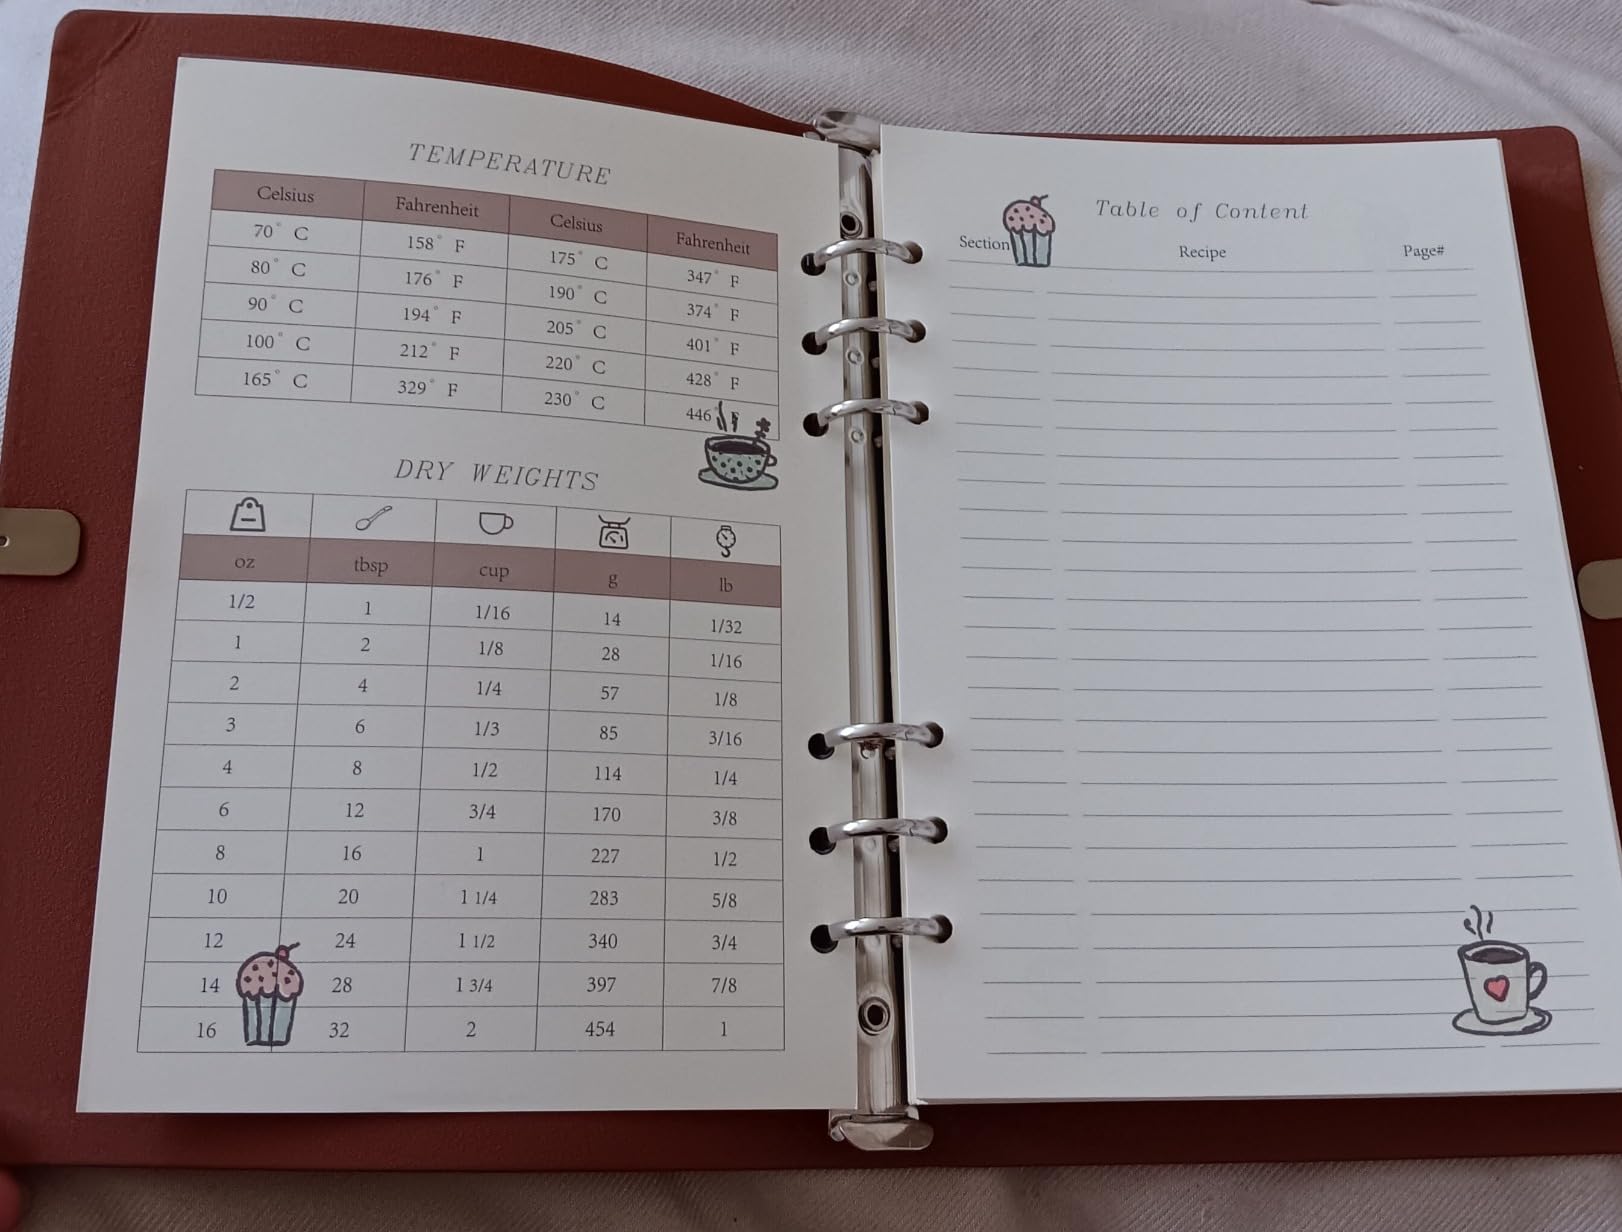 TEMPERATURE
Celsius Fahrenheit Celsius Fahrenheit
70° C 158° F 175° C 347° F
80° C 176° F 190° C 374° F
90° C 194° F 205° C 401° F
100° C 212° F 220° C 428° F
165° C 329° F 230° C 446 F
DRY WEIGHTS
oz tbsp cup g lb
1/2 1 1/16 14 1/32
1 2 1/8 28 1/16
2 4 1/4 57 1/8
3 6 1/3 85 3/16
4 8 1/2 114 1/4
6 12 3/4 170 3/8
8 16 1 227 1/2
10 20 1 1/4 283 5/8
12 24 1 1/2 340 3/4
14 28 1 3/4 397 7/8
16 32 2 454 1
Table of Content
Section Recipe Page#